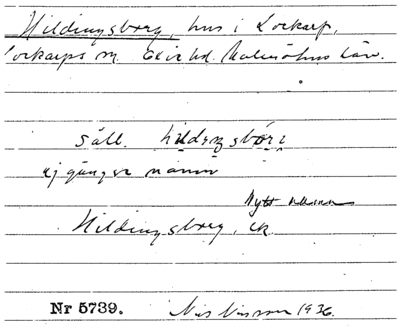 Hildingsborg, hus i Lockarp,
Lockarps sn. Oxie hd. Malmöhus län.
säll. hildiŋsbörj
ej gängse namn
Nytt namn
Hildingsborg, ek
Nr 5739. Nils Nilsson 1936.